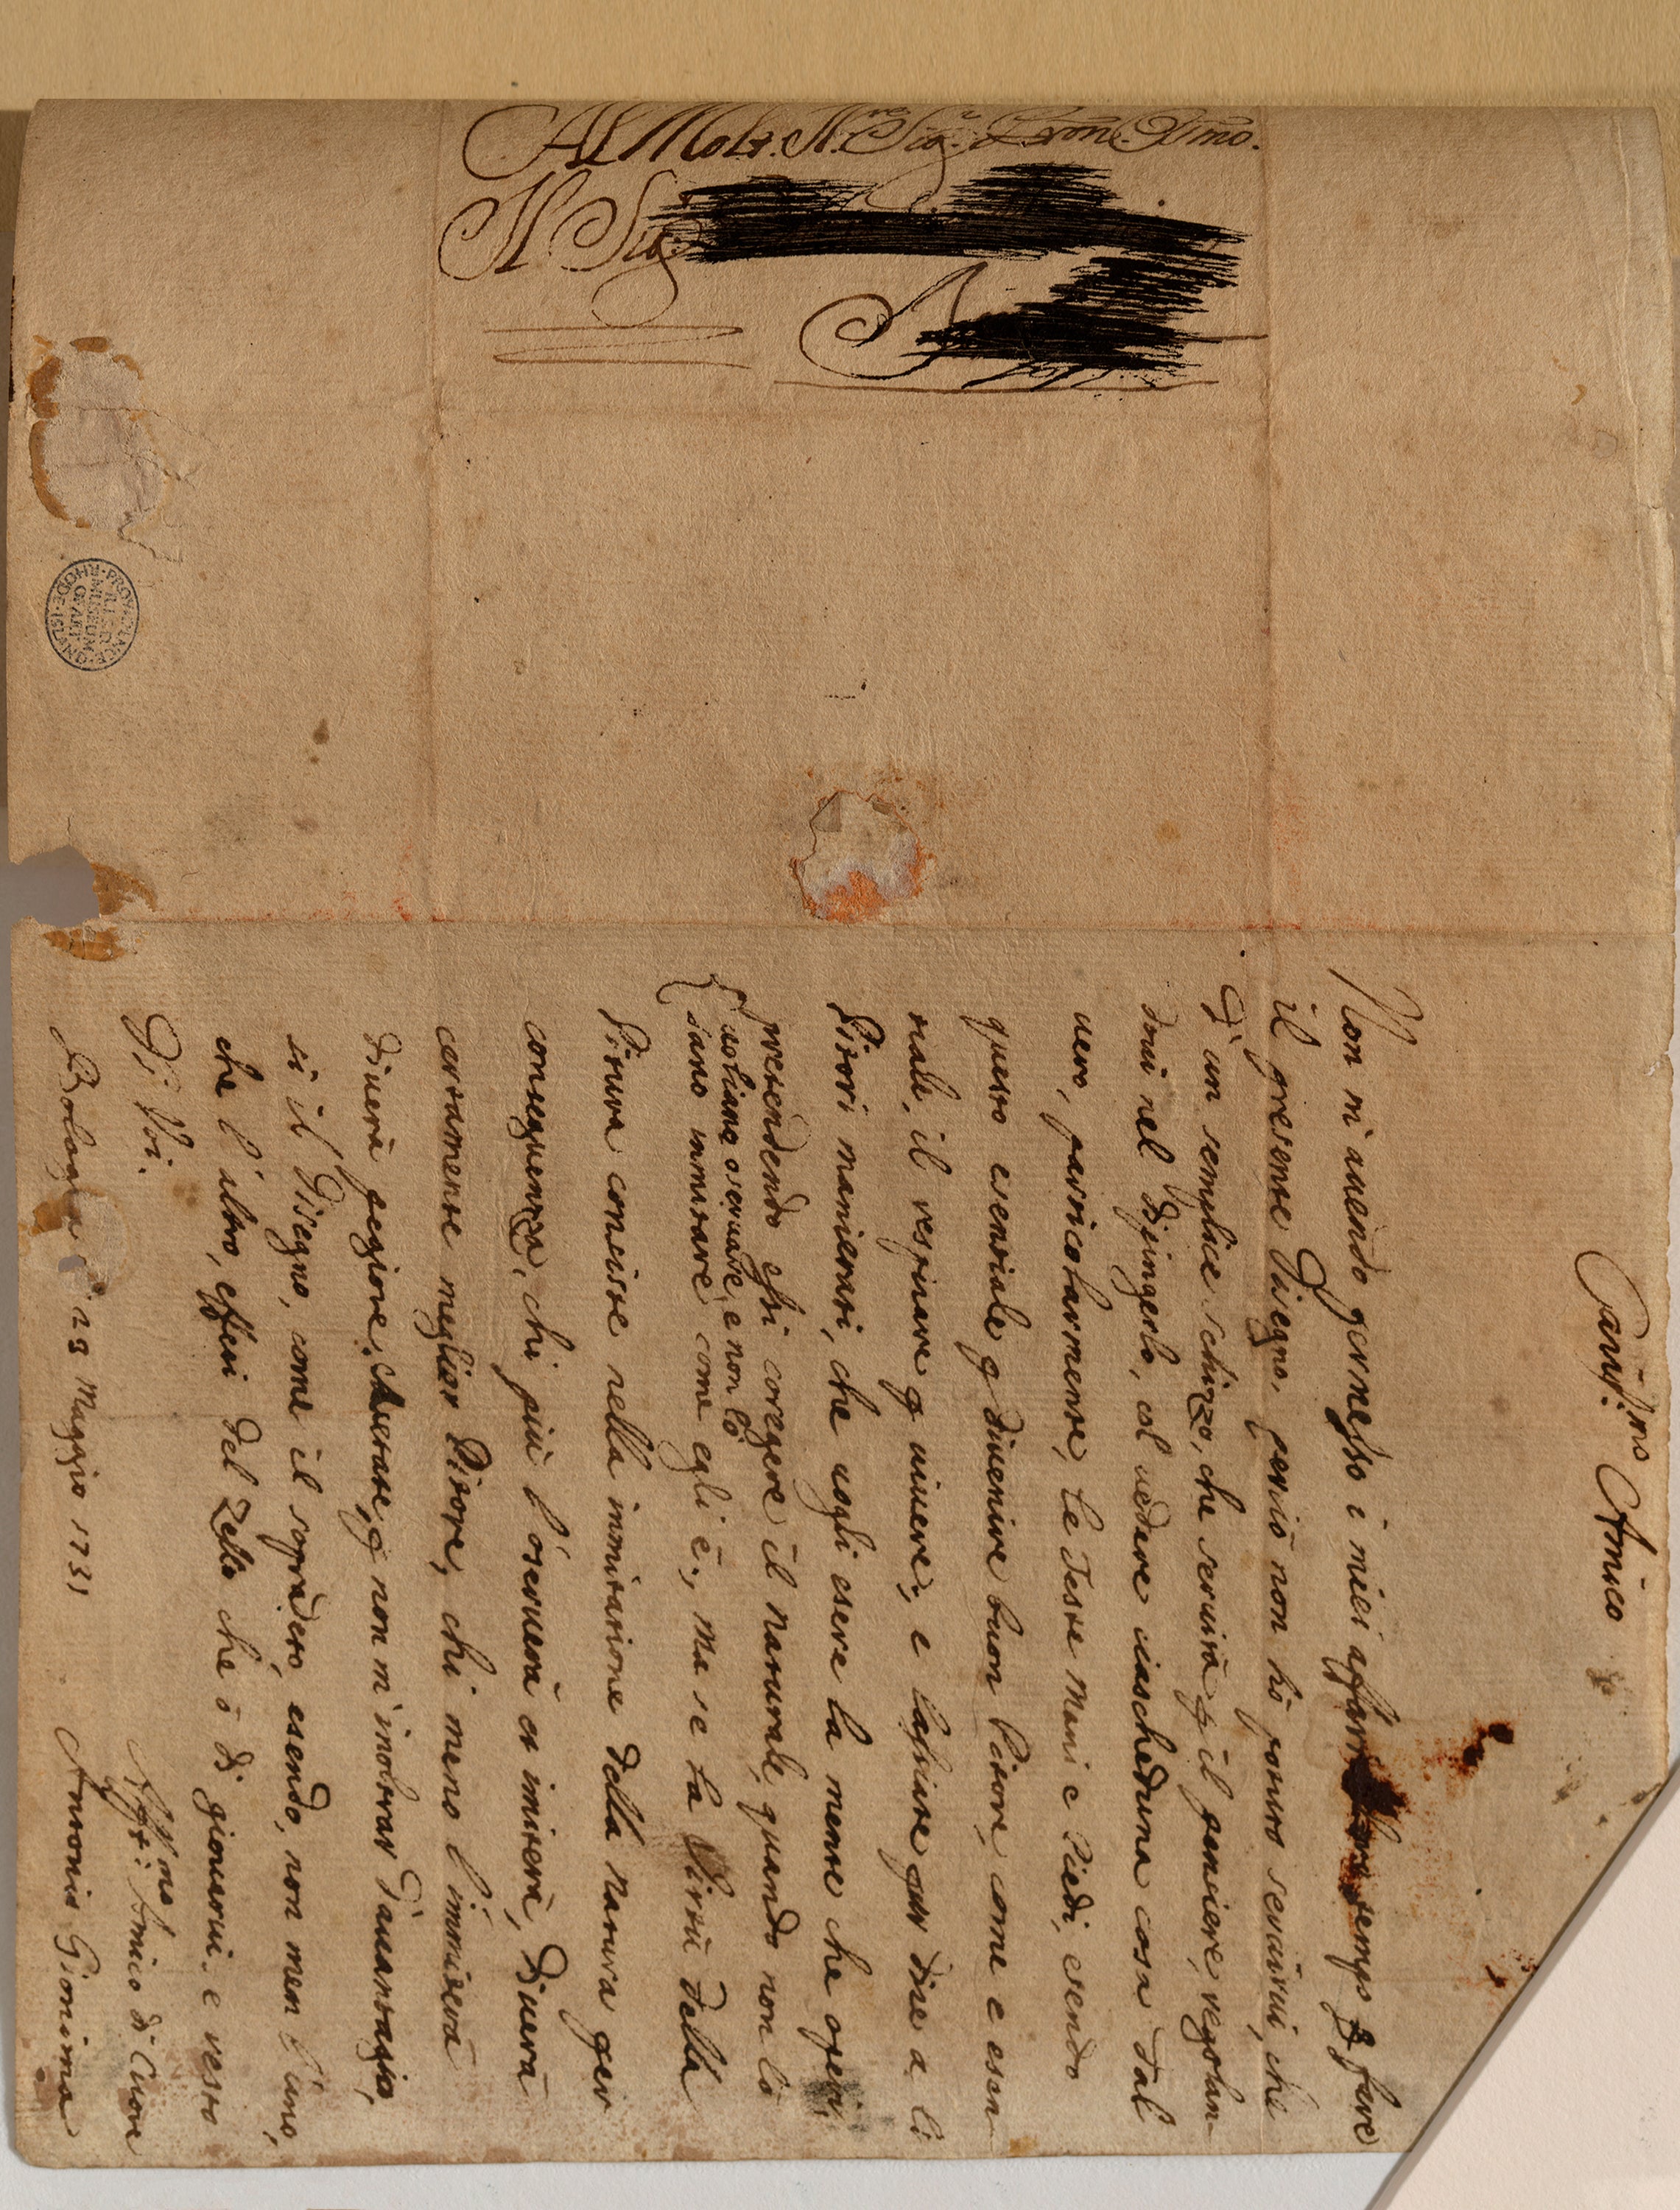 Al Molt. Il.re Sig.r e Pron. Oss.mo.
Il Sig.
PROVIDENCE · RHODE · ISLAND
R.I.S.D.
MUSEUM
OF ART
Cariss.mo Amico
Non m'auendo permesso i miei affari tempo p fare
il presente Disegno, perciò non hò potuto seruirui, che
d'un semplice schizzo, che seruirà p il pensiere, regolan-
doui nel dipingerlo, col uedere ciascheduna cosa dal
uero, particolarmente, le Teste Mani e Piedi, esendo
questo esentiale p diuenire buon Pitore, come e esen
tiale, il respirare p uiuere, e lasciate pur dire a li
Pitori manierati, che uogli esere la mente che operi,
pretendendo essi coregere il naturale, quando non lo
uoliano oseruare, e non lo
sano immitare, come egli è, ma se la Virtù della
Pitura consiste nella immitatione della natura per
conseguenza, chi più l'oseruerà et imiterà, diuerà
certamente meglior Pitore, chi meno l'immiterà
diuerà pegiore. p non m'inoltrar d'auantagio,
sì il Disegno, come il sopradeto, esendo, non men l'uno,
che l'altro, effeti del Zello che ò di giouarui. e resto
Di Voi.
Aff.mo Amico di Cuore
Bologna 29 Maggio 1731
Antonio Gionima